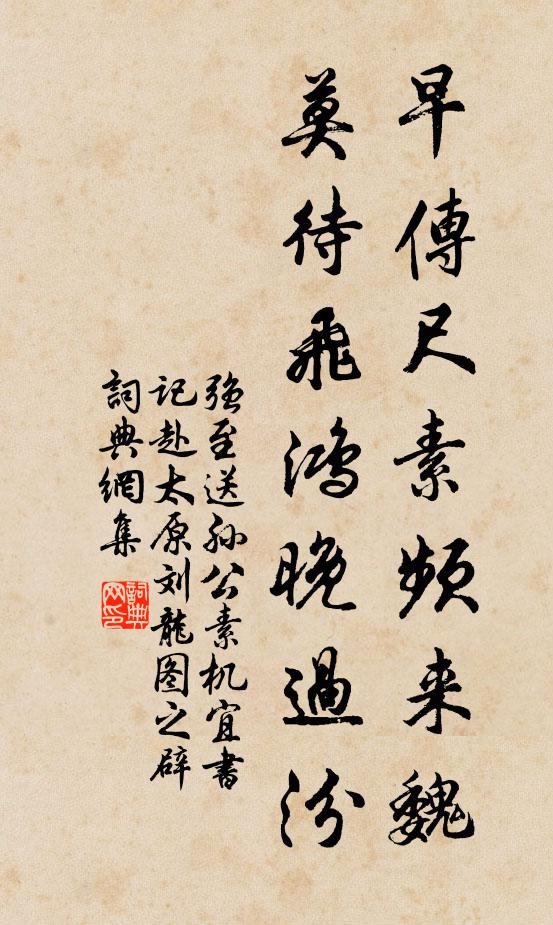 早傳尺素頻来魏
莫待飛鴻晚過汾
强至送孙公素机宜書
记赴太原刘龍图之辟
詞典網集
詞典
网印